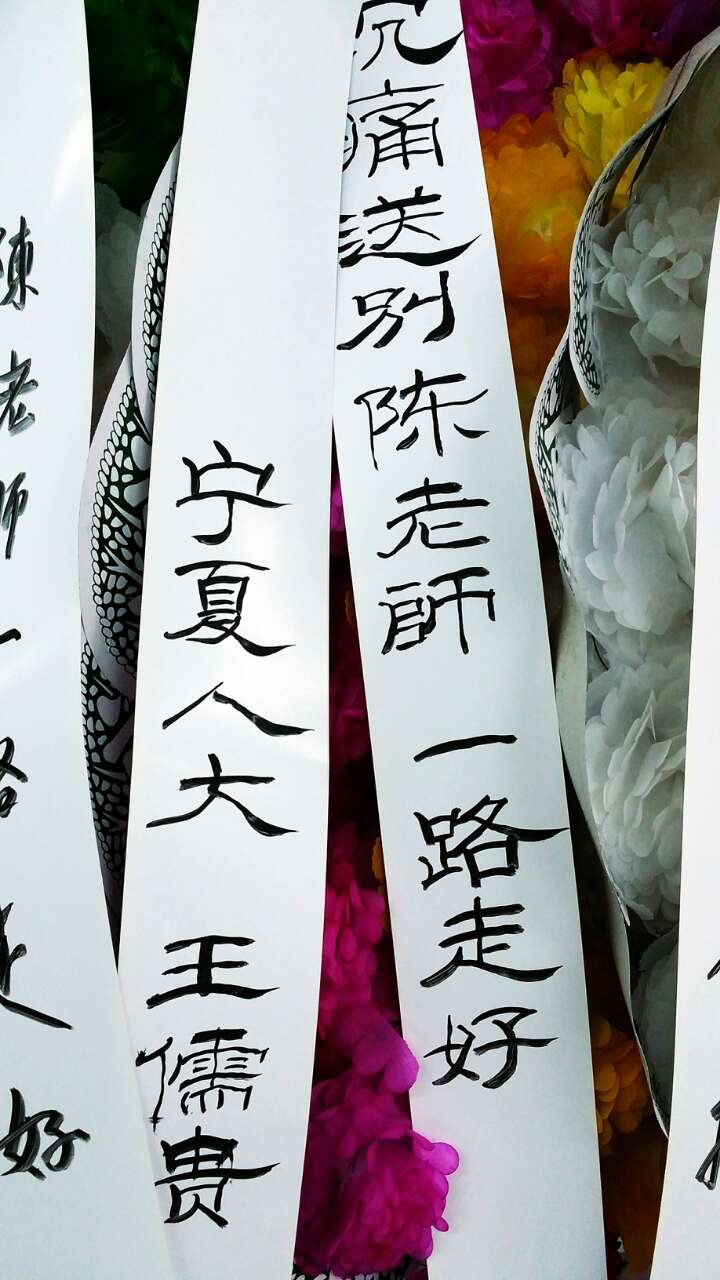 沉痛送别陈老師 一路走好
宁夏人大 王儒贵
陳老师一路走好